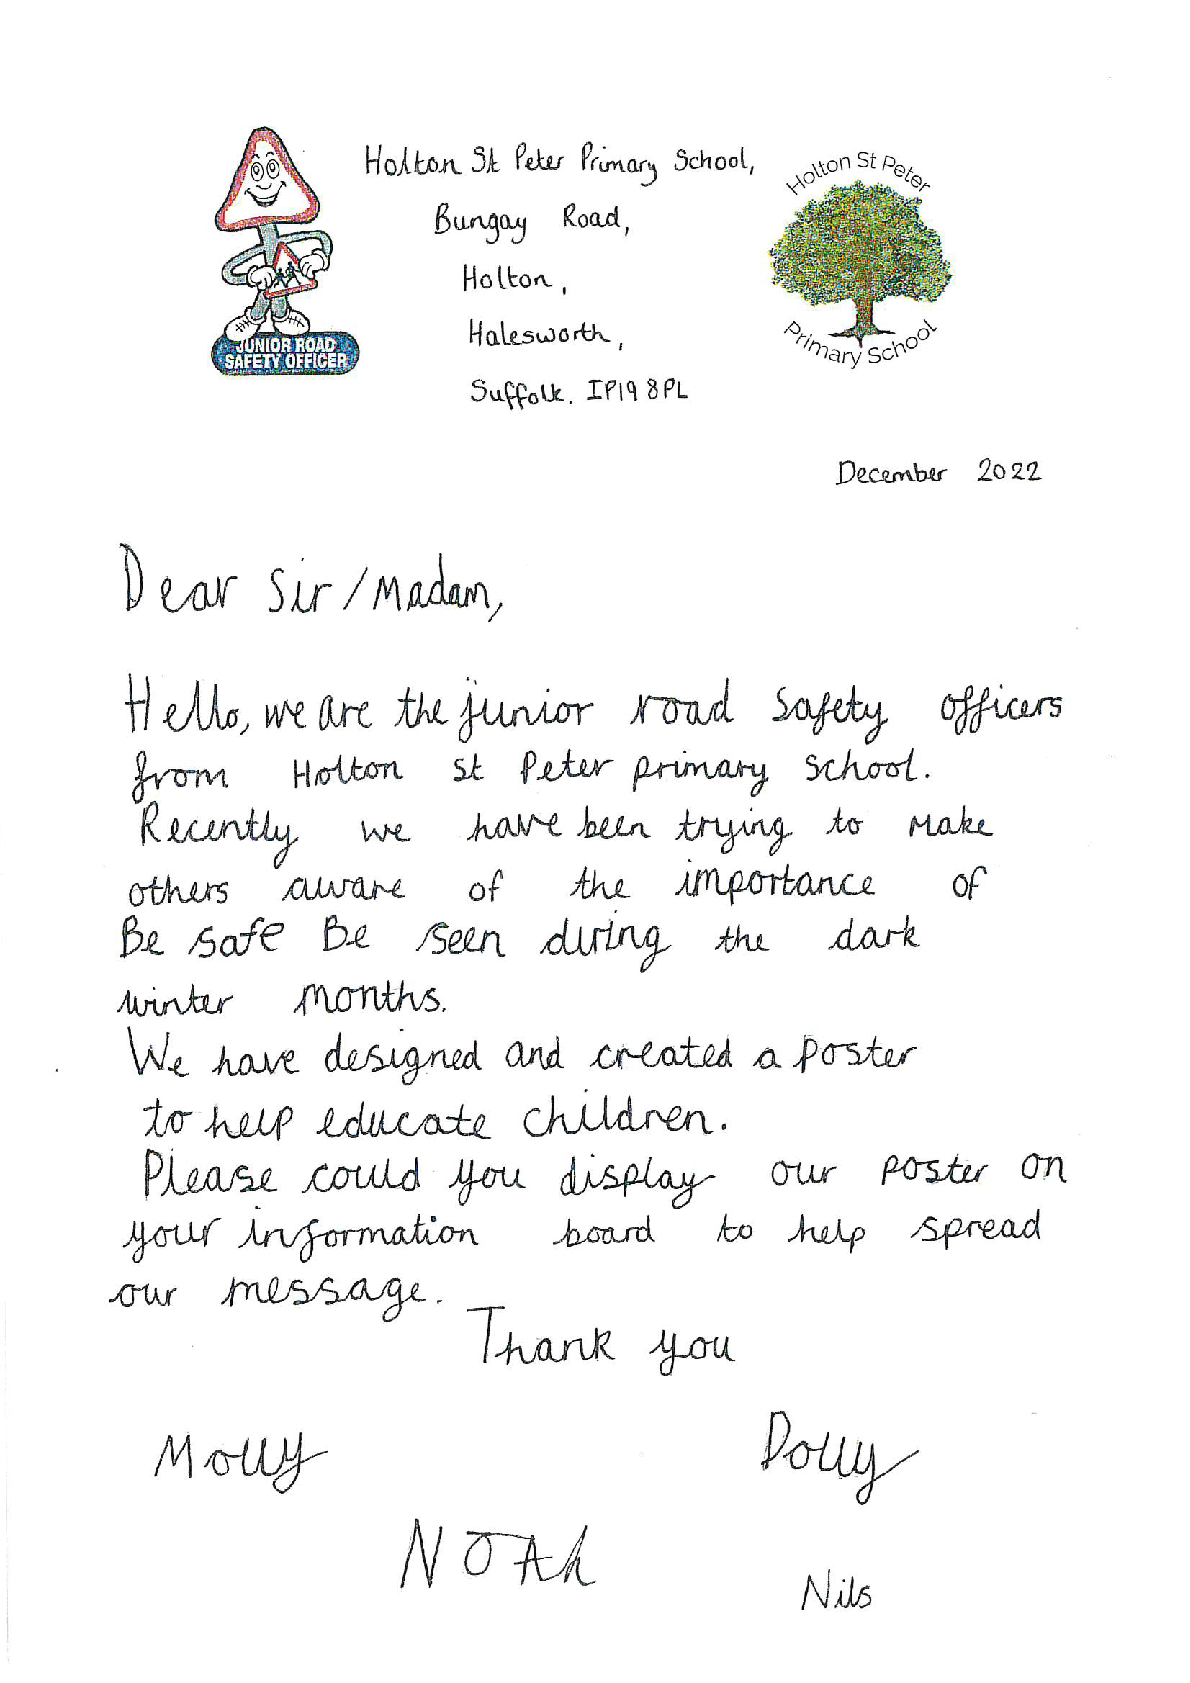 Holton St Peter Primary School,
Bungay Road,
Holton,
Halesworth,
Suffolk. IP19 8PL
JUNIOR ROAD
SAFETY OFFICER
Holton St Peter
Primary School
December 2022
Dear Sir/Madam,
Hello, we are the junior road safety officers
from Holton st Peter primary school.
Recently we have been trying to make
others aware of the importance of
Be safe Be seen during the dark
winter months.
We have designed and created a poster
to help educate children.
Please could you display our poster on
your information board to help spread
our message.
Thank you
Molly
Dolly
NOAh
Nils